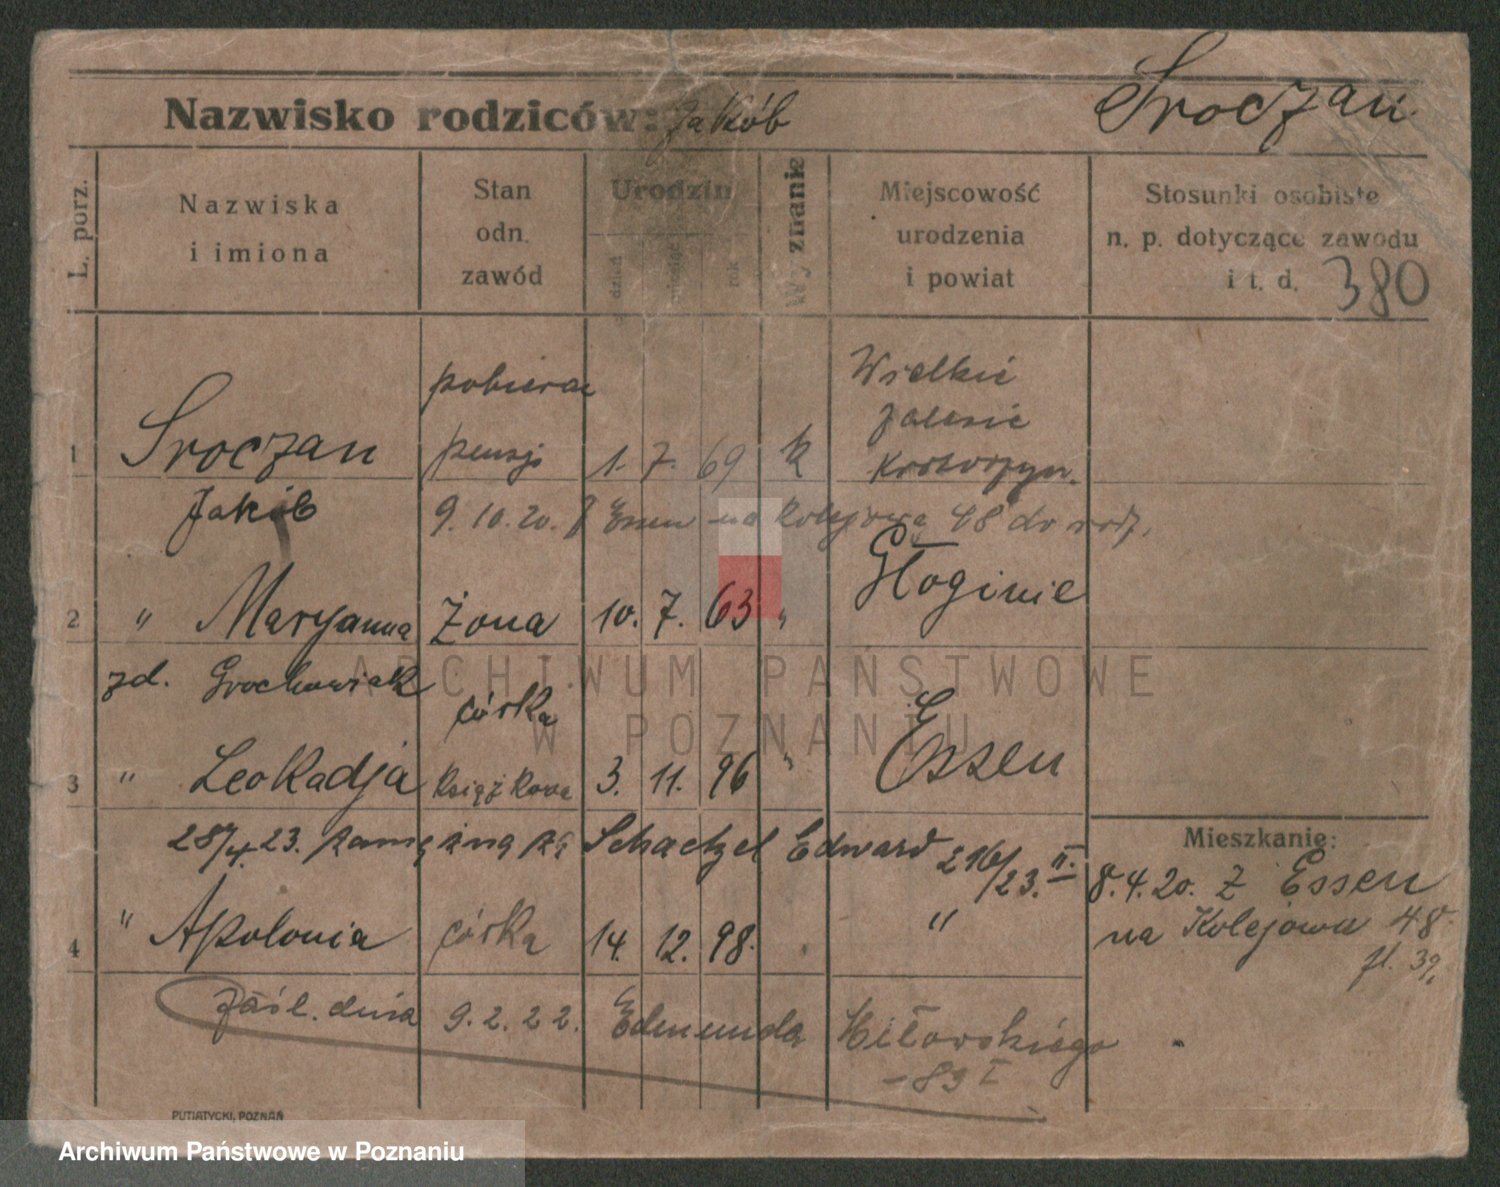 Nazwisko rodziców: Jakób Sroczan
L. porz.
Nazwiska i imiona
Stan odn. zawód
Urodzin
dzień miesiąc rok
Wyznanie
Miejscowość urodzenia i powiat
Stosunki osobiste n. p. dotyczące zawodu i t. d. 380
1 Sroczan pobiera pensję 1. 7. 69 k Wielkie Zalesie Krotoszyn.
Jakób 9.10.20. Essen na Kolejową 48 do rodz.
2 " Maryanna żona 10. 7. 63 " Głoginie
zd. Grochowiak
3 " Leokadja córka książkowa 3. 11. 96 " Essen
28/4.23. zamężna za Schaetzel Edward 216/23. II.
4 " Apolonia córka 14. 12. 98. "
zaśl. dnia 9.2.22. Edmunda
- 89 I
Mieszkanie:
8.4.20. z Essen
na Kolejowa 48.
PUTIATYCKI, POZNAŃ
ARCHIWUM PAŃSTWOWE
W POZNANIU
Archiwum Państwowe w Poznaniu